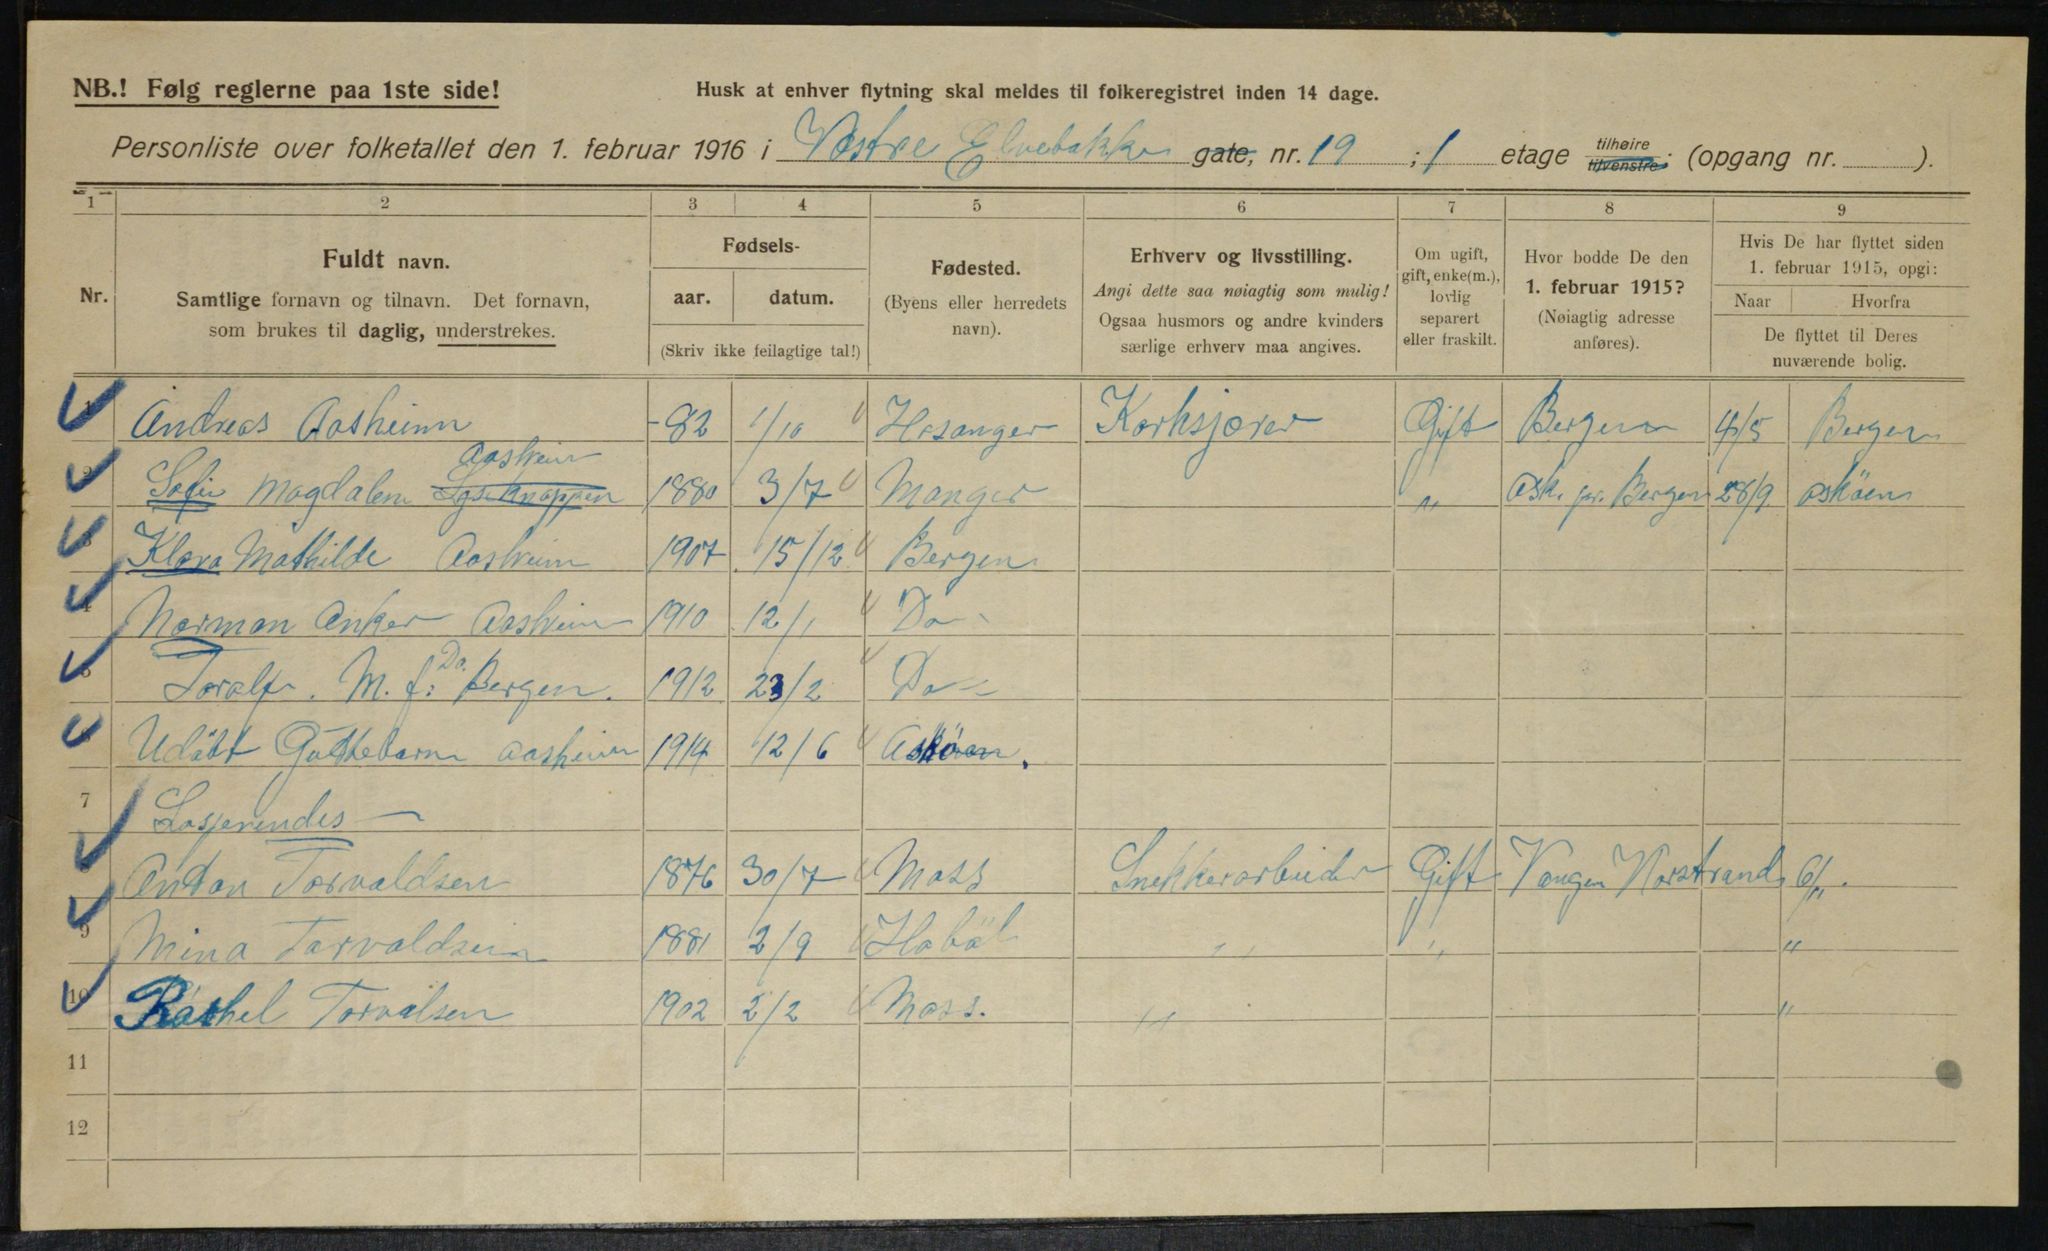 NB.! Følg reglerne paa 1ste side!
Husk at enhver flytning skal meldes til folkeregistret inden 14 dage.
Personliste over folketallet den 1. februar 1916 i Vestre Elvebakke gate, nr. 19 ; 1 etage tilhøire tilvenstre ; (opgang nr. ).
1 2 3 4 5 6 7 8 9
Nr.
Fuldt navn.
Samtlige fornavn og tilnavn. Det fornavn,
som brukes til daglig, understrekes.
Fødsels-
aar. datum.
(Skriv ikke feilagtige tal!)
Fødested.
(Byens eller herredets
navn).
Erhverv og livsstilling.
Angi dette saa nøiagtig som mulig!
Ogsaa husmors og andre kvinders
særlige erhverv maa angives.
Om ugift,
gift, enke(m.),
lovlig
separert
eller fraskilt.
Hvor bodde De den
1. februar 1915?
(Nøiagtig adresse
anføres).
Hvis De har flyttet siden
1. februar 1915, opgi:
Naar Hvorfra
De flyttet til Deres
nuværende bolig.
1 Andreas Aasheim -82 1/10 Hosanger Korkskjærer Gift Bergen 4/5 Bergen
Aasheim
2 Sofie Magdalene Lyseknappen 1880 3/7 Manger " Ask. pr. Bergen 28/9 Asköen
3 Klara Mathilde Aasheim 1907 15/12 Bergen
4 Norman Anker Aasheim 1910 12/1 Do
5 Toralf. M. f: Do. Bergen. 1912 23/2 Do
6 Udöbt Guttebarn Aasheim 1914 12/6 Asköen.
7 Losjerendes
Anton Torvaldsen 1876 30/7 Moss Snekkerarbeider Gift Vangen Norstrand 6/11.
9 Mina Torvaldsen 1881 2/9 Haböl " " "
10 Rachel Torvalsen 1902 2/2 Moss. " "
11
12